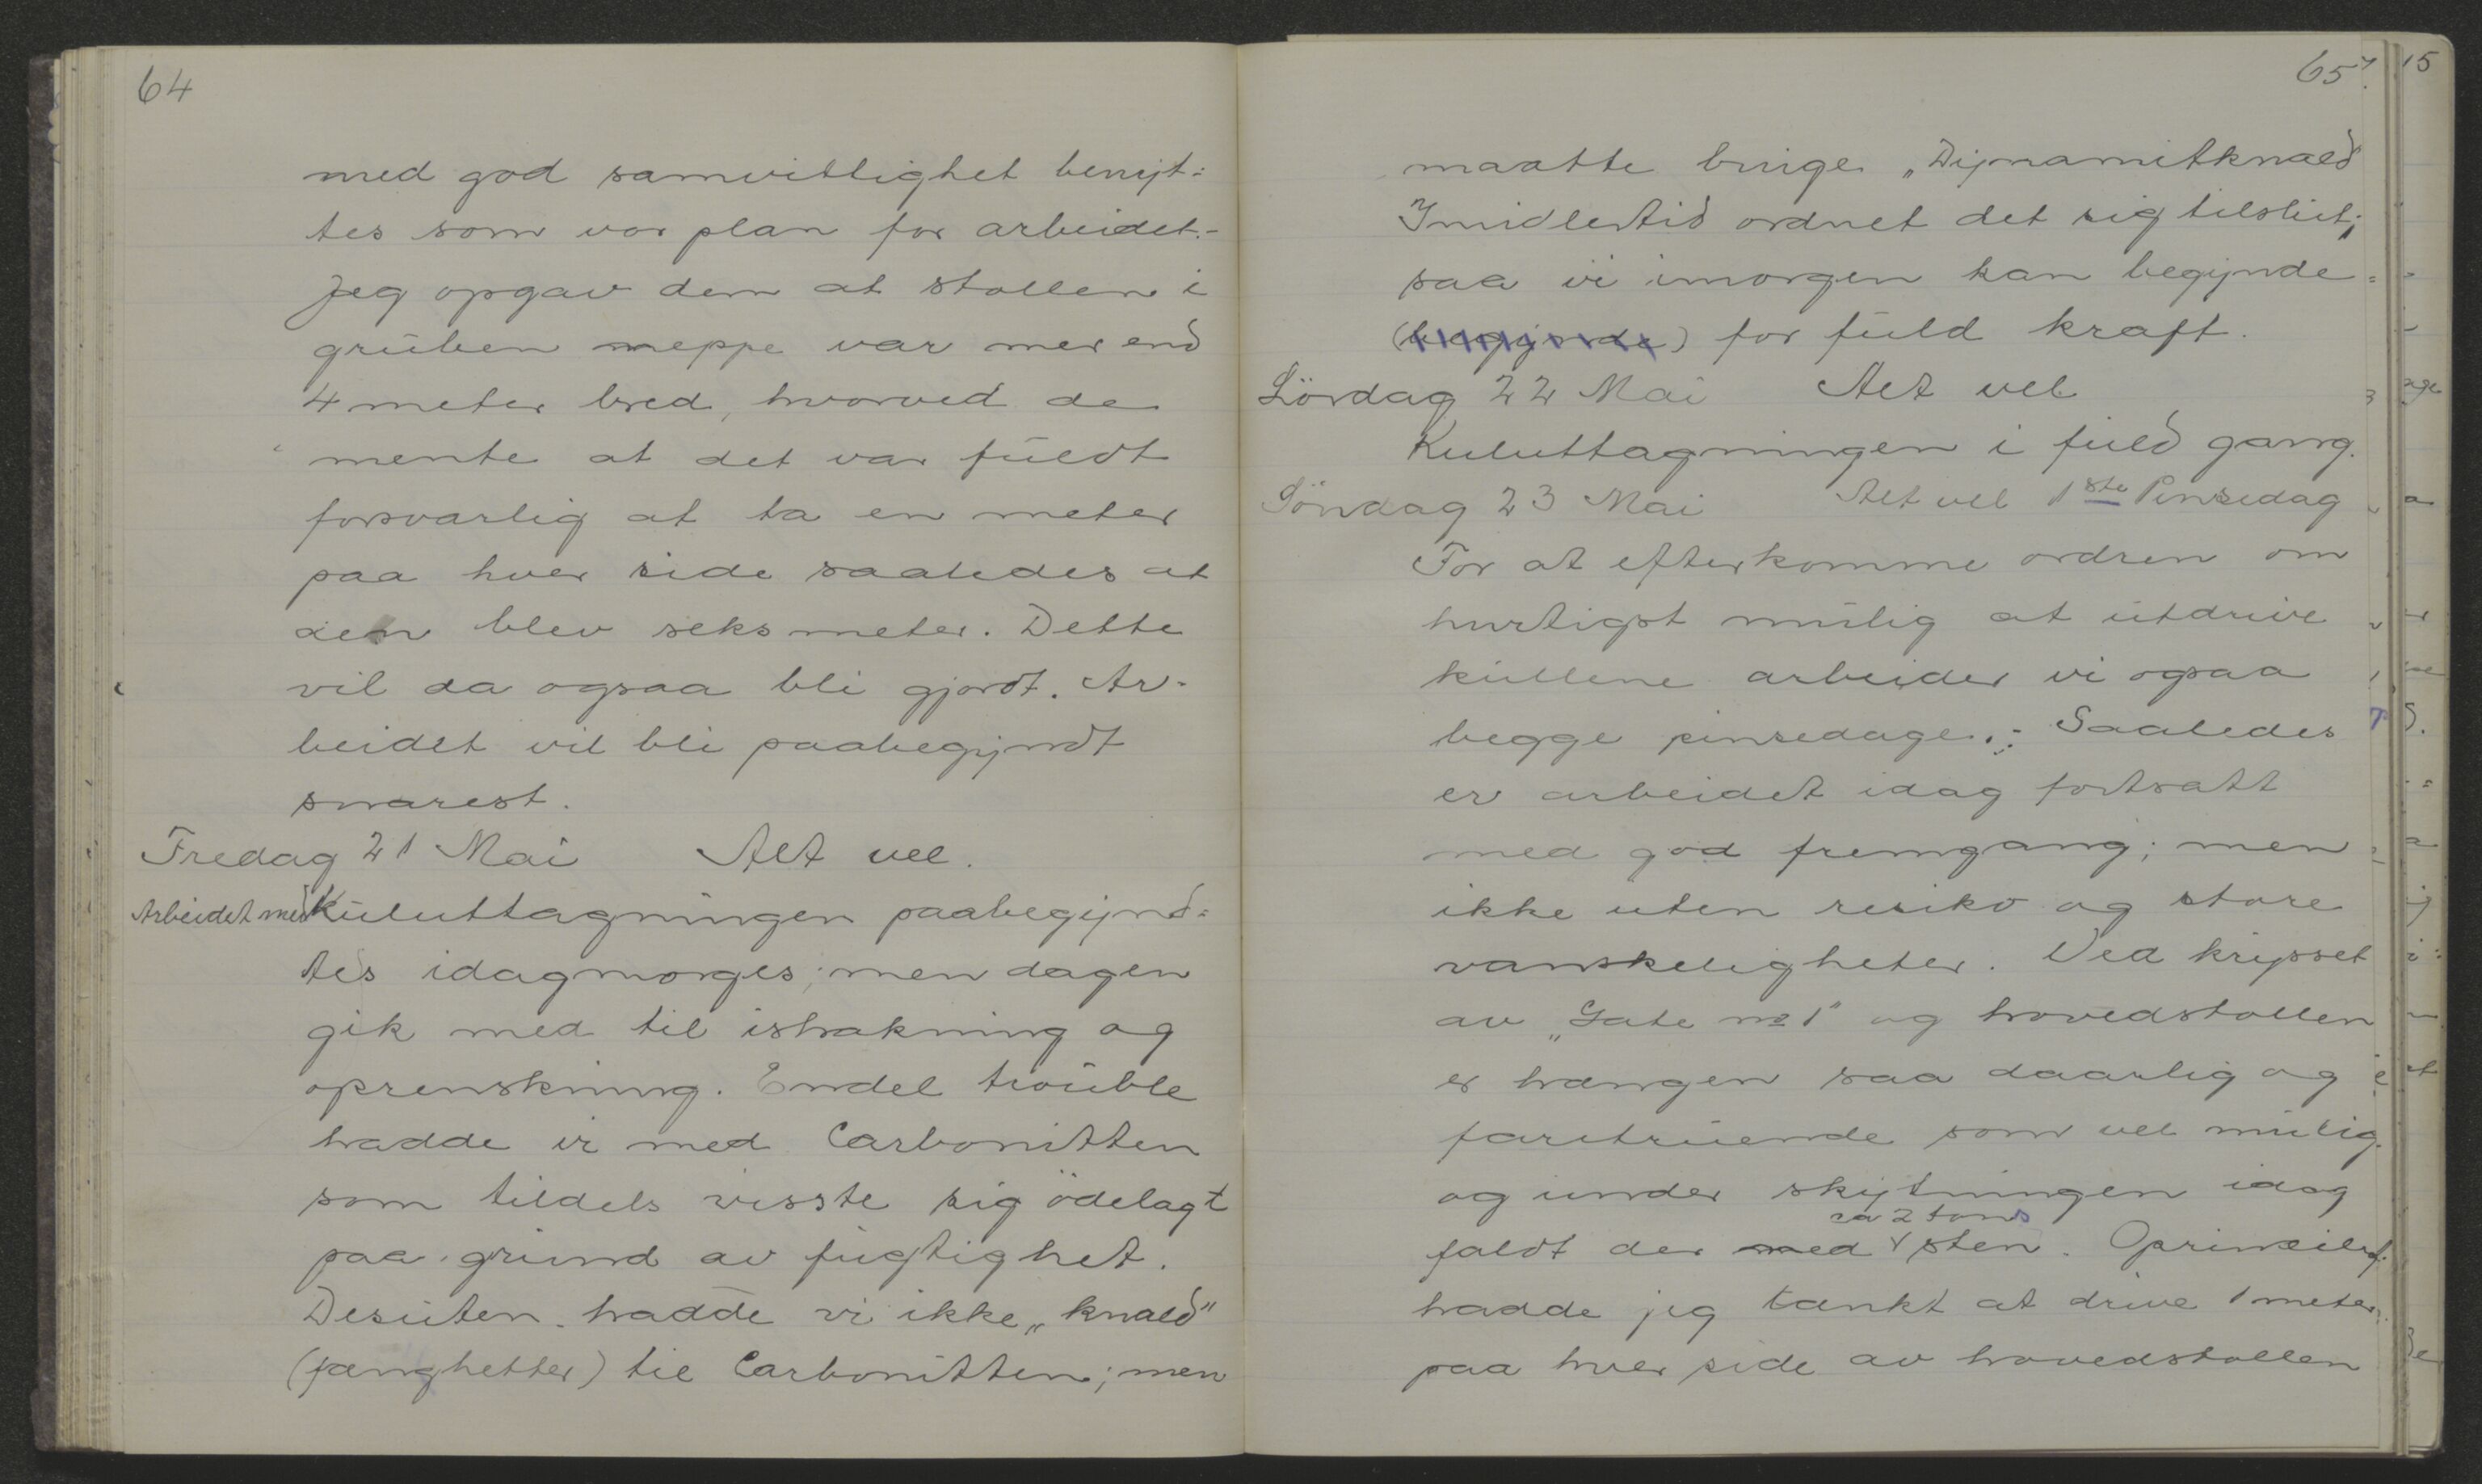 64
med god samvittighet benyt=
tes som vor plan for arbeidet.-
Jeg opgav dem at stollen i
gruben neppe var mer end
4 meter bred, hvorved de
mente at det var fuldt
forsvarlig at ta en meter
paa hver side saaledes at
den blev seks meter. Dette
vil da ogsaa bli gjordt. Ar-
beidet vil bli paabegyndt
snarest.
Fredag 21 Mai Alt vel.
Arbeidet med Kuluttagningen paabegynd=
tes idagmorges; men dagen
gik med til ishakning og
oprenskning. Endel trouble
hadde vi med Carbonitten
som tildels visste sig ödelagt
paa grund av fugtighet.
Desuten hadde vi ikke „knald"
(fænghetter) til Carbonitten; men
65
maatte bruge „Dynamitknald
Imidlertid ordnet det sig tilslut;
saa vi imorgen kan begynde
(begynde) for fuld kraft.
Lördag 22 Mai Alt vel
Kuluttagningen i fuld gang.
Söndag 23 Mai Alt vel 1ste Pinsedag
For at efterkomme ordren om
hurtigst mulig at utdrive
kullene arbeider vi ogsaa
begge pinsedage.; Saaledes
er arbeidet idag fortsatt
med god fremgang; men
ikke uten risiko og store
vanskeligheter. Ved krysset
av „Gate no 1" og hovedstollen
er hængen saa daarlig og
faretruende som vel mulig.
og under skytningen idag
ca 2 tons
faldt der med sten.
hadde jeg tænkt at drive 1 meter
paa hver side av hovedstollen
15